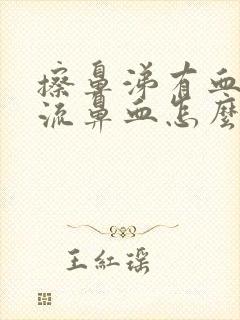 擦鼻涕有血
流鼻血怎麼
王紅瑶